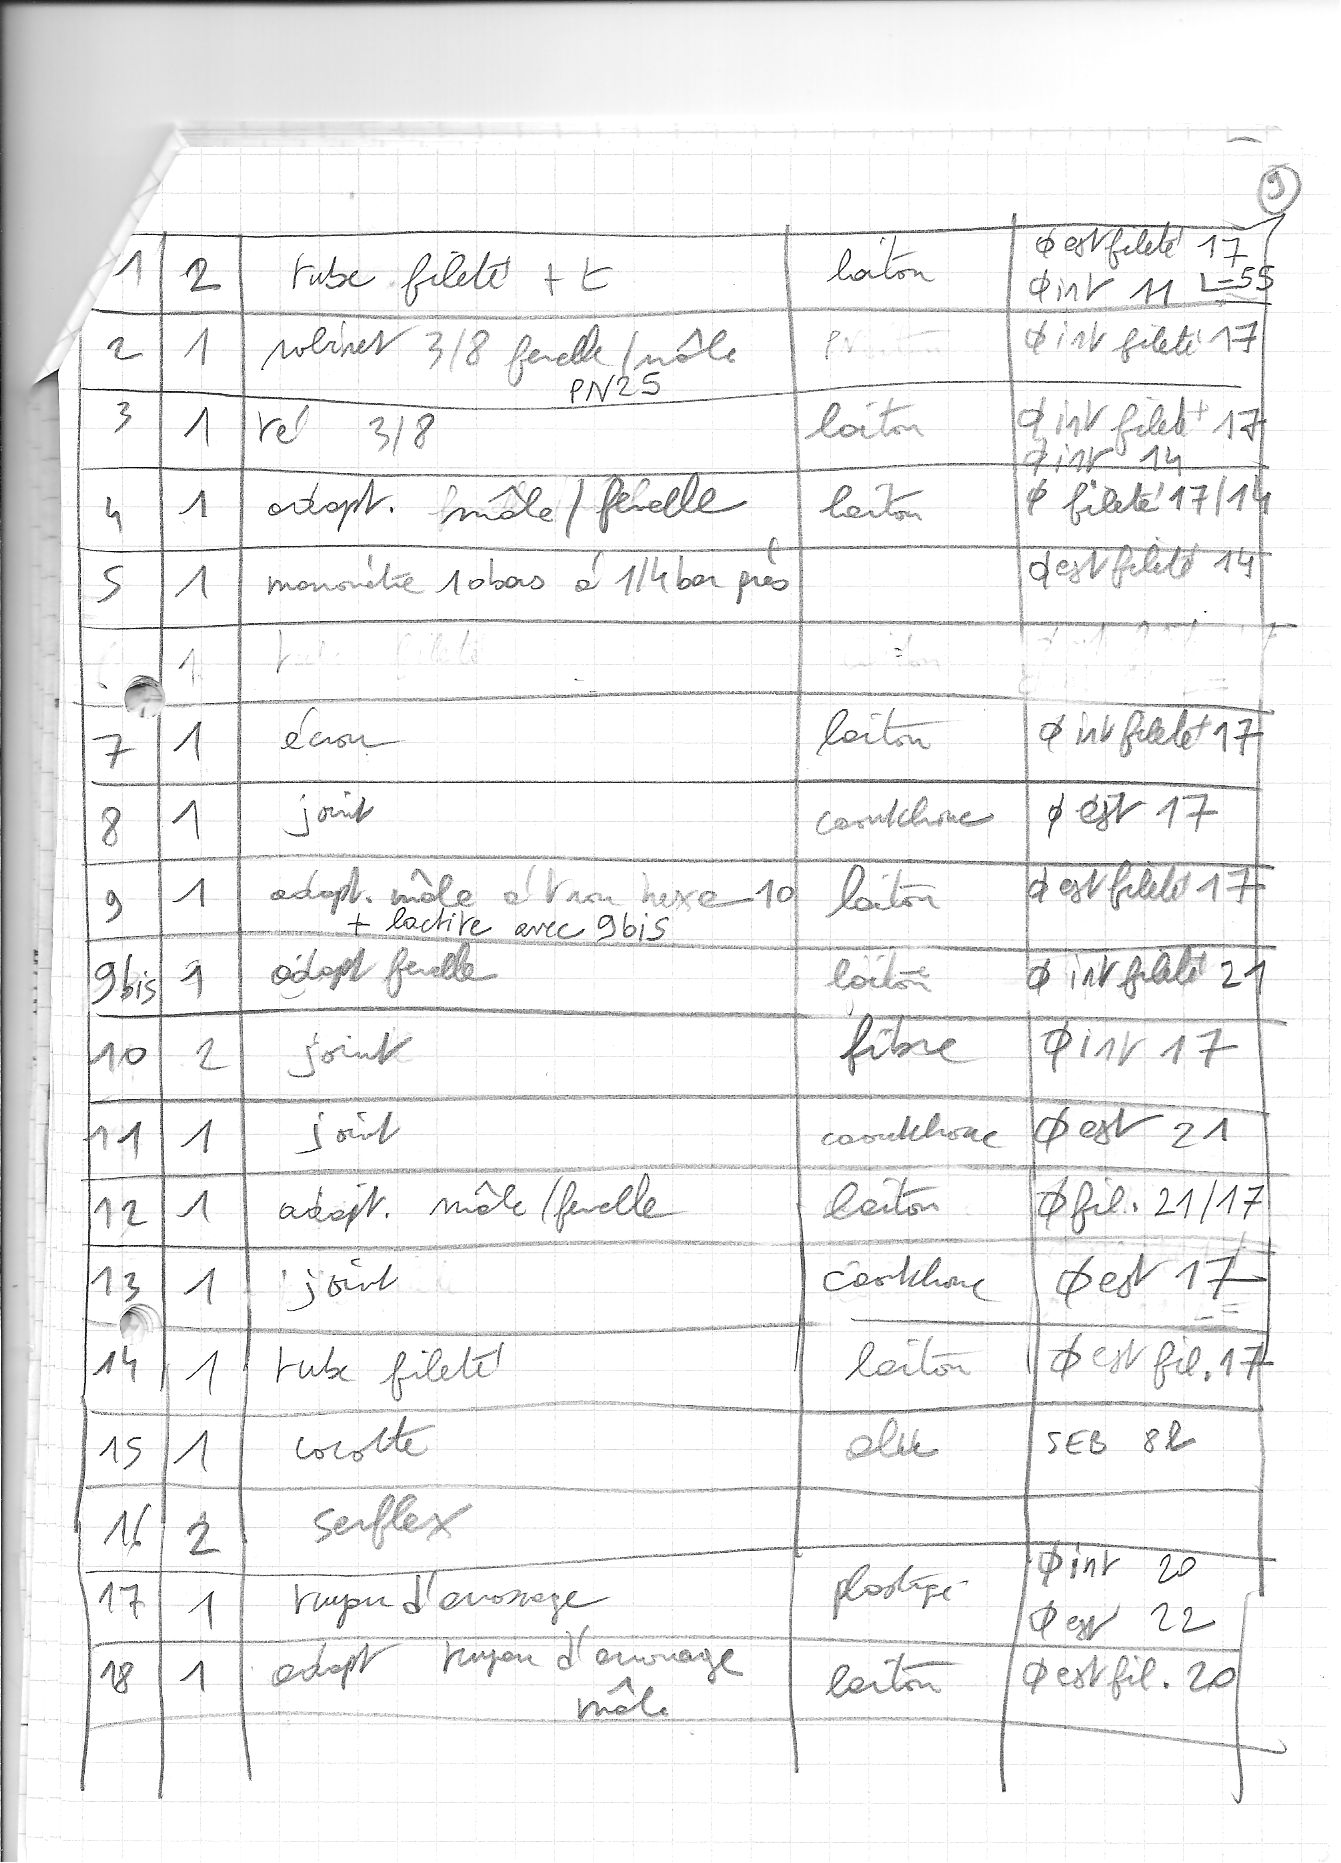 9
1 2 tube fileté + t laiton ϕ ext fileté 17
ϕ int 11 L=55
2 1 robinet 3/8 femelle/mâle ϕ int fileté 17
PN25
3 1 té 3/8 laiton ϕ int fileté 17
ϕ int 14
4 1 adapt. mâle/femelle laiton ϕ fileté 17/14
5 1 manomètre 10bars à 1/4bar près ϕ ext fileté 14
1 tube fileté laiton
7 1 écrou laiton ϕ int fileté 17
8 1 joint caoutchouc ϕ ext 17
9 1 adapt. mâle à trou hexa 10 laiton ϕ ext fileté 17
+ loctite avec 9bis
9bis 1 adapt femelle laiton ϕ int fileté 21
10 2 joint fibre ϕ int 17
11 1 joint caoutchouc ϕ ext 21
12 1 adapt. mâle/femelle laiton ϕ fil. 21/17
13 1 joint caoutchouc ϕ ext 17
14 1 tube fileté laiton ϕ ext fil. 17
15 1 cocotte alu SEB 8L
16 2 serflex
17 1 tuyau d'arrosage plastique ϕ int 20
ϕ ext 22
18 1 adapt tuyau d'arrosage laiton ϕ ext fil. 20
mâle